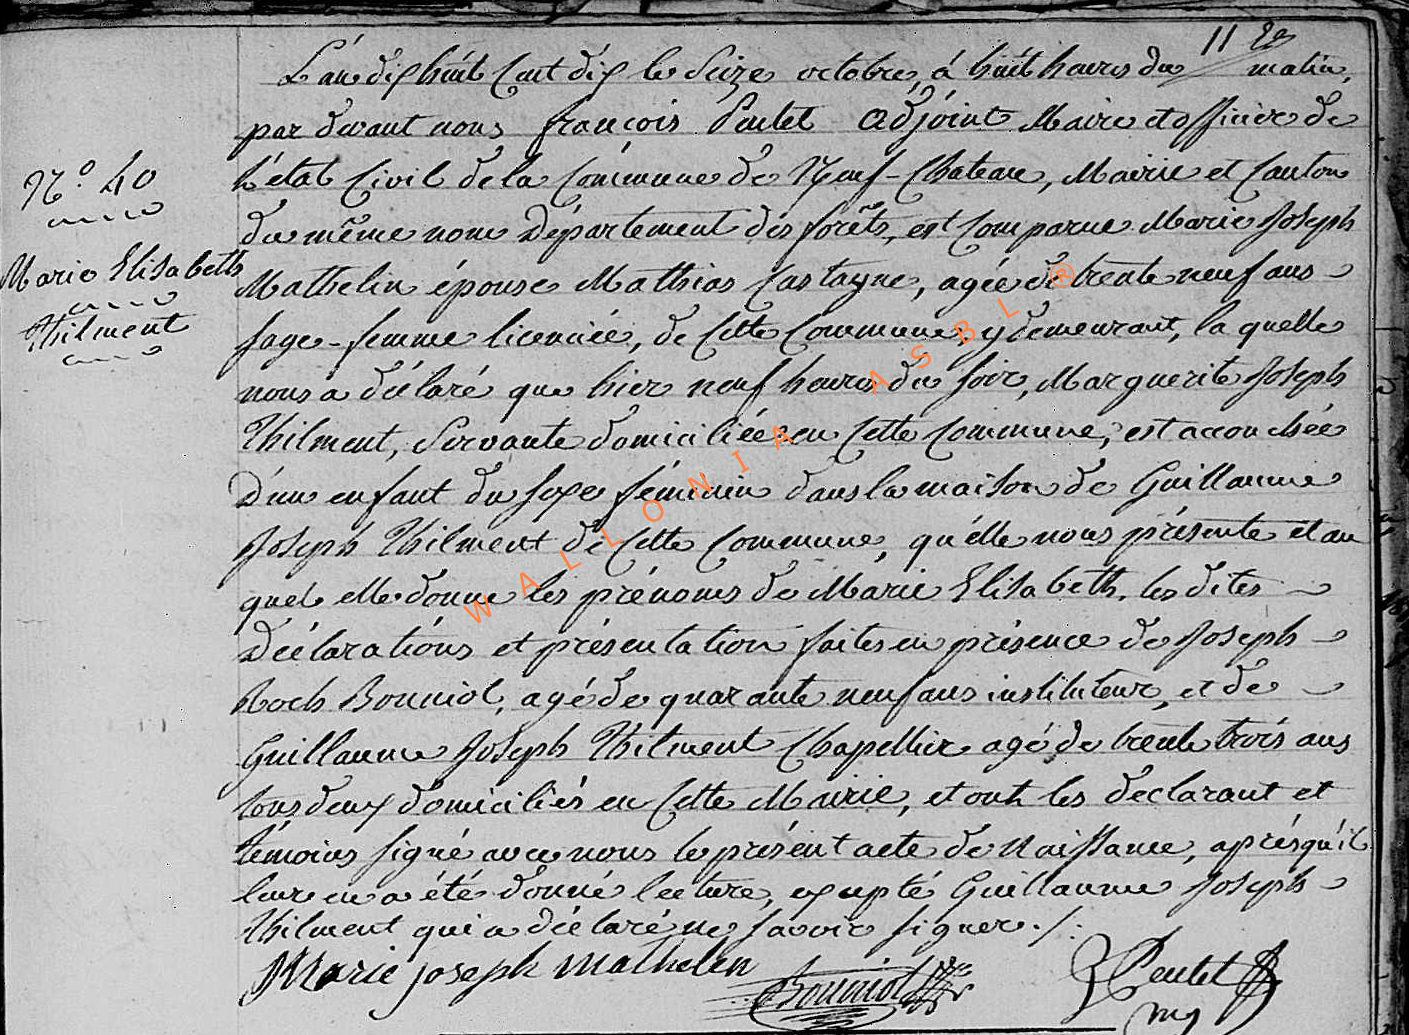 11
L'an dix huit cent dix le seize octobre, à huit heures du matin,
par devant nous françois Pentet adjoint Maire et officier de
l'état Civil de la Commune de Neuf-Chateau, Mairie et Canton
du même nom Département des forêts, est comparue Marie Joseph
Mathelin épouse Mathias Castagne, agée de trente neuf ans
sage-femme licenciée, de cette commune y demeurant, la quelle
nous a déclaré que hier neuf heures du soir, Marguerite Joseph
Thilment, Servante domiciliée en cette commune, est accouchée
D'un enfant du sexe féminin dans la maison de Guillaume
Joseph Thilment de cette commune, qu'elle nous présente et au
quel elle donne les prénoms de Marie Elisabeth, les dites
Déclarations et présentation faites en présence de Joseph
Roch Bouniol, agé de quarante neuf ans instituteur, et de
Guillaume Joseph Thilment Chapellier agé de trente trois ans
tous deux domiciliés en cette Mairie, et ont les déclarant et
témoins signé avec nous le présent acte de Naissance, après qu'il
leur en a été donné lecture, excepté Guillaume Joseph
Thilment qui a déclaré ne savoir signer./.
Marie joseph mathelin
Bouniol
Pentet
N.° 40
Marie Elisabeth
Thilment
WALLONIA ASBL ®